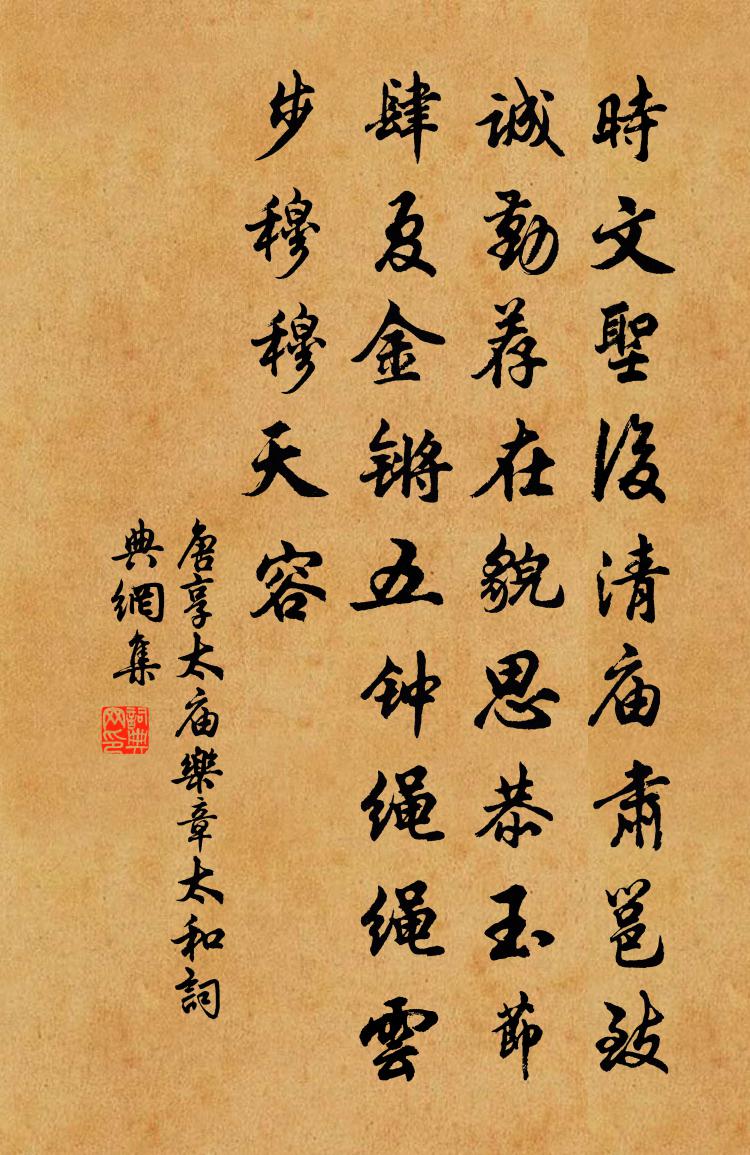 時文聖後清庙肅邕致
誠勤荐在貌思恭玉節
肆夏金锵五钟绳绳雲
步穆穆天容
唐享太庙樂章太和詞
典網集
詞典网印